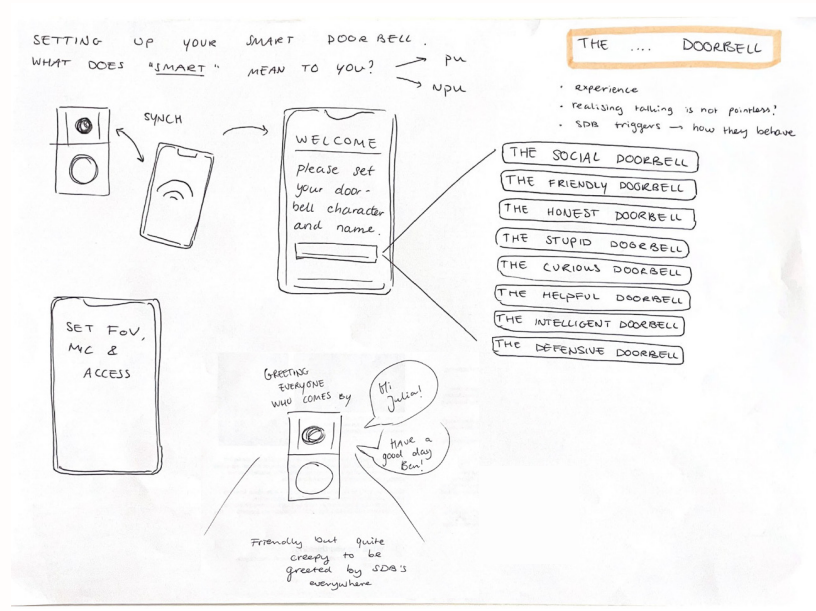 SETTING UP YOUR SMART DOORBELL.
WHAT DOES "SMART" MEAN TO YOU?
pu
npu
THE .... DOORBELL
· experience
· realising talking is not pointless?
· SDB triggers → how they behave
SYNCH
WELCOME
please set
your door-
bell character
and name.
THE SOCIAL DOORBELL
THE FRIENDLY DOORBELL
THE HONEST DOORBELL
THE STUPID DOORBELL
THE CURIOUS DOORBELL
THE HELPFUL DOORBELL
THE INTELLIGENT DOORBELL
THE DEFENSIVE DOORBELL
SET FOV,
MIC &
ACCESS
GREETING
EVERYONE
WHO COMES BY
Hi
Julia!
HAVE a
good day
Ben!
Friendly but quite
creepy to be
greeted by SDB'S
everywhere